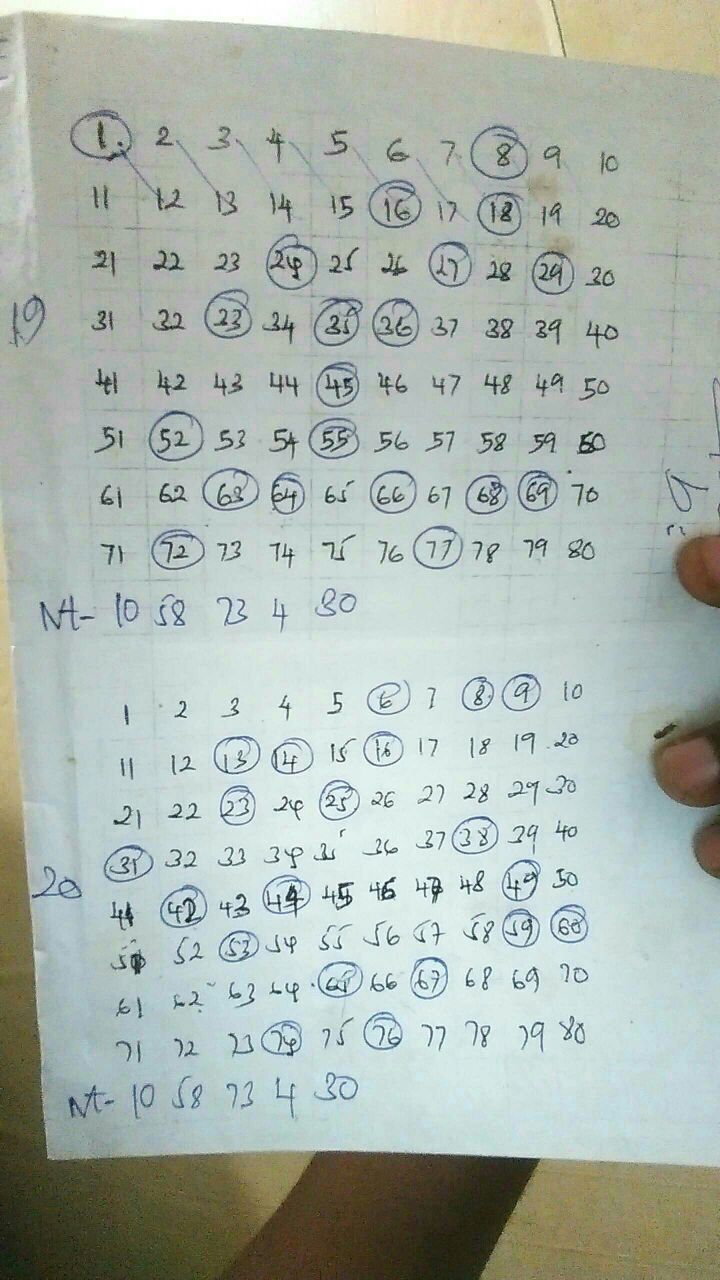 1 2 3 4 5 6 7 8 9 10
11 12 13 14 15 16 17 18 19 20
21 22 23 24 25 26 27 28 29 30
19
31 32 33 34 35 36 37 38 39 40
41 42 43 44 45 46 47 48 49 50
51 52 53 54 55 56 57 58 59 60
61 62 63 64 65 66 67 68 69 70
71 72 73 74 75 76 77 78 79 80
Nt- 10 58 73 4 30
1 2 3 4 5 6 7 8 9 10
11 12 13 14 15 16 17 18 19 20
21 22 23 24 25 26 27 28 29 30
31 32 33 34 35 36 37 38 39 40
20
41 42 43 44 45 46 47 48 49 50
51 52 53 54 55 56 57 58 59 60
61 62 63 64 65 66 67 68 69 70
71 72 73 74 75 76 77 78 79 80
Nt- 10 58 73 4 30